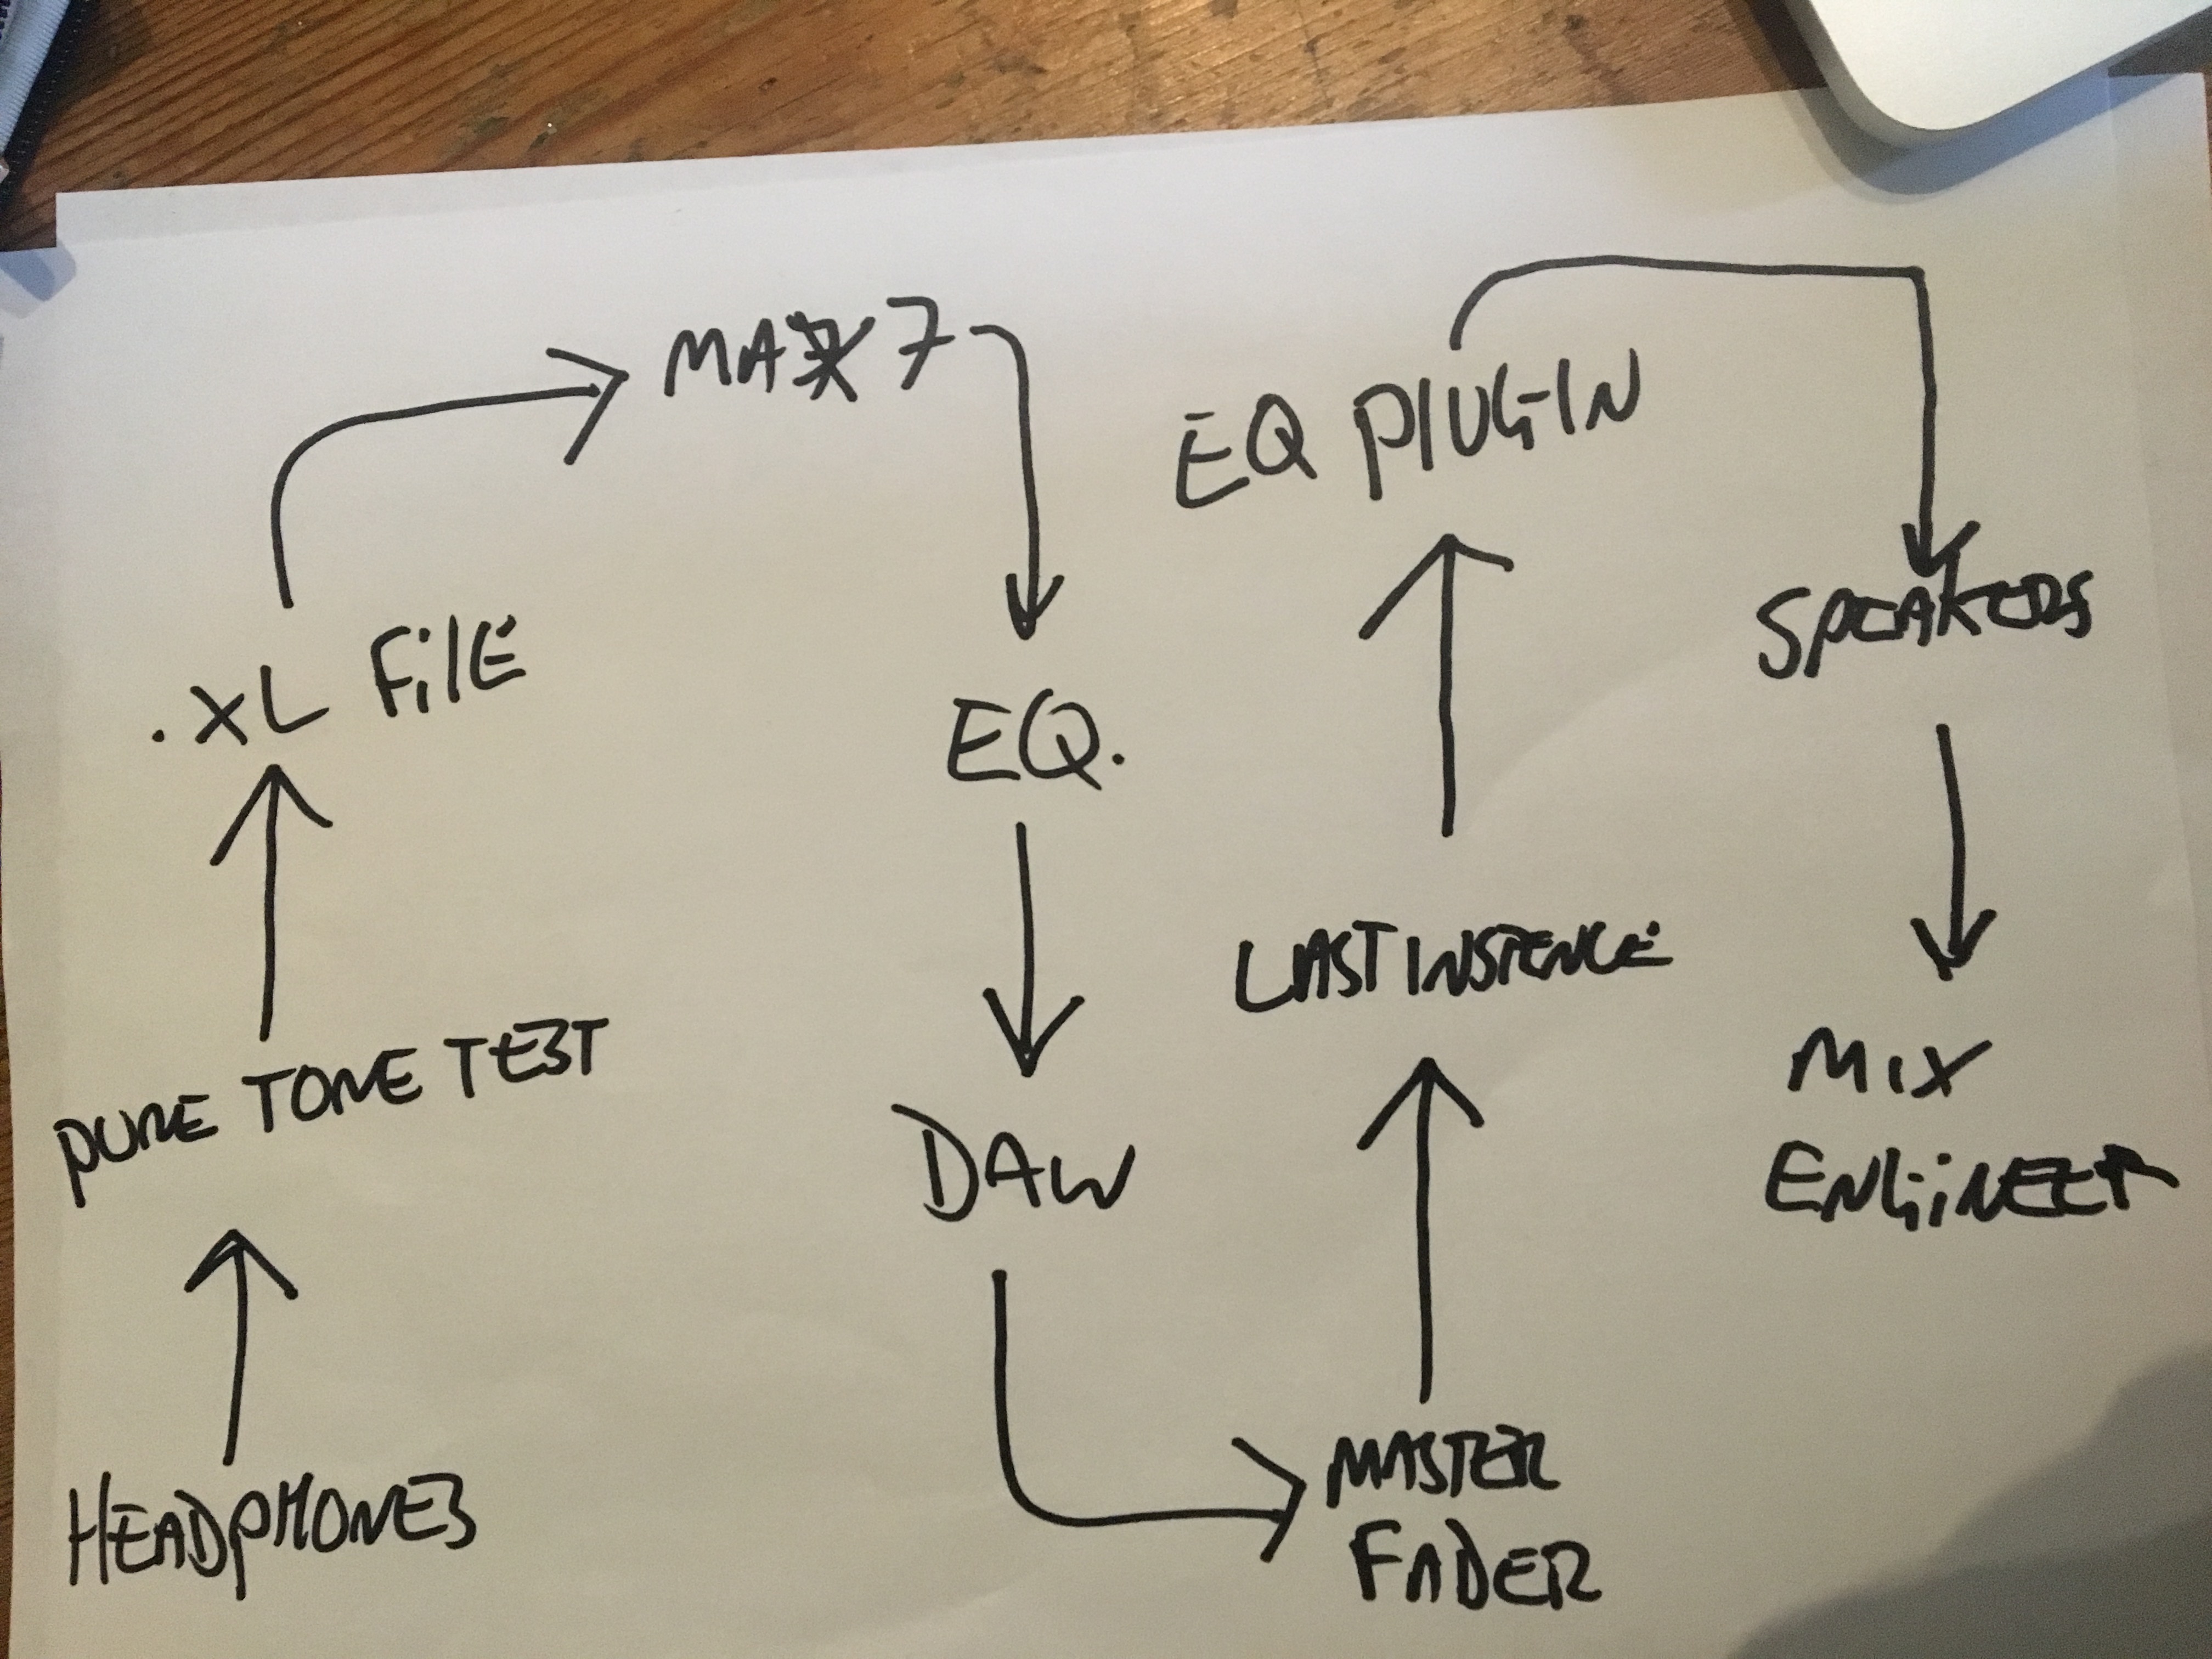 HEADPHONES
PURE TONE TEST
.XL FILE
MAX 7
EQ.
DAW
MASTER
FADER
LAST INSTENCE
EQ PLUG-IN
SPEAKERS
MIX
ENGINEER